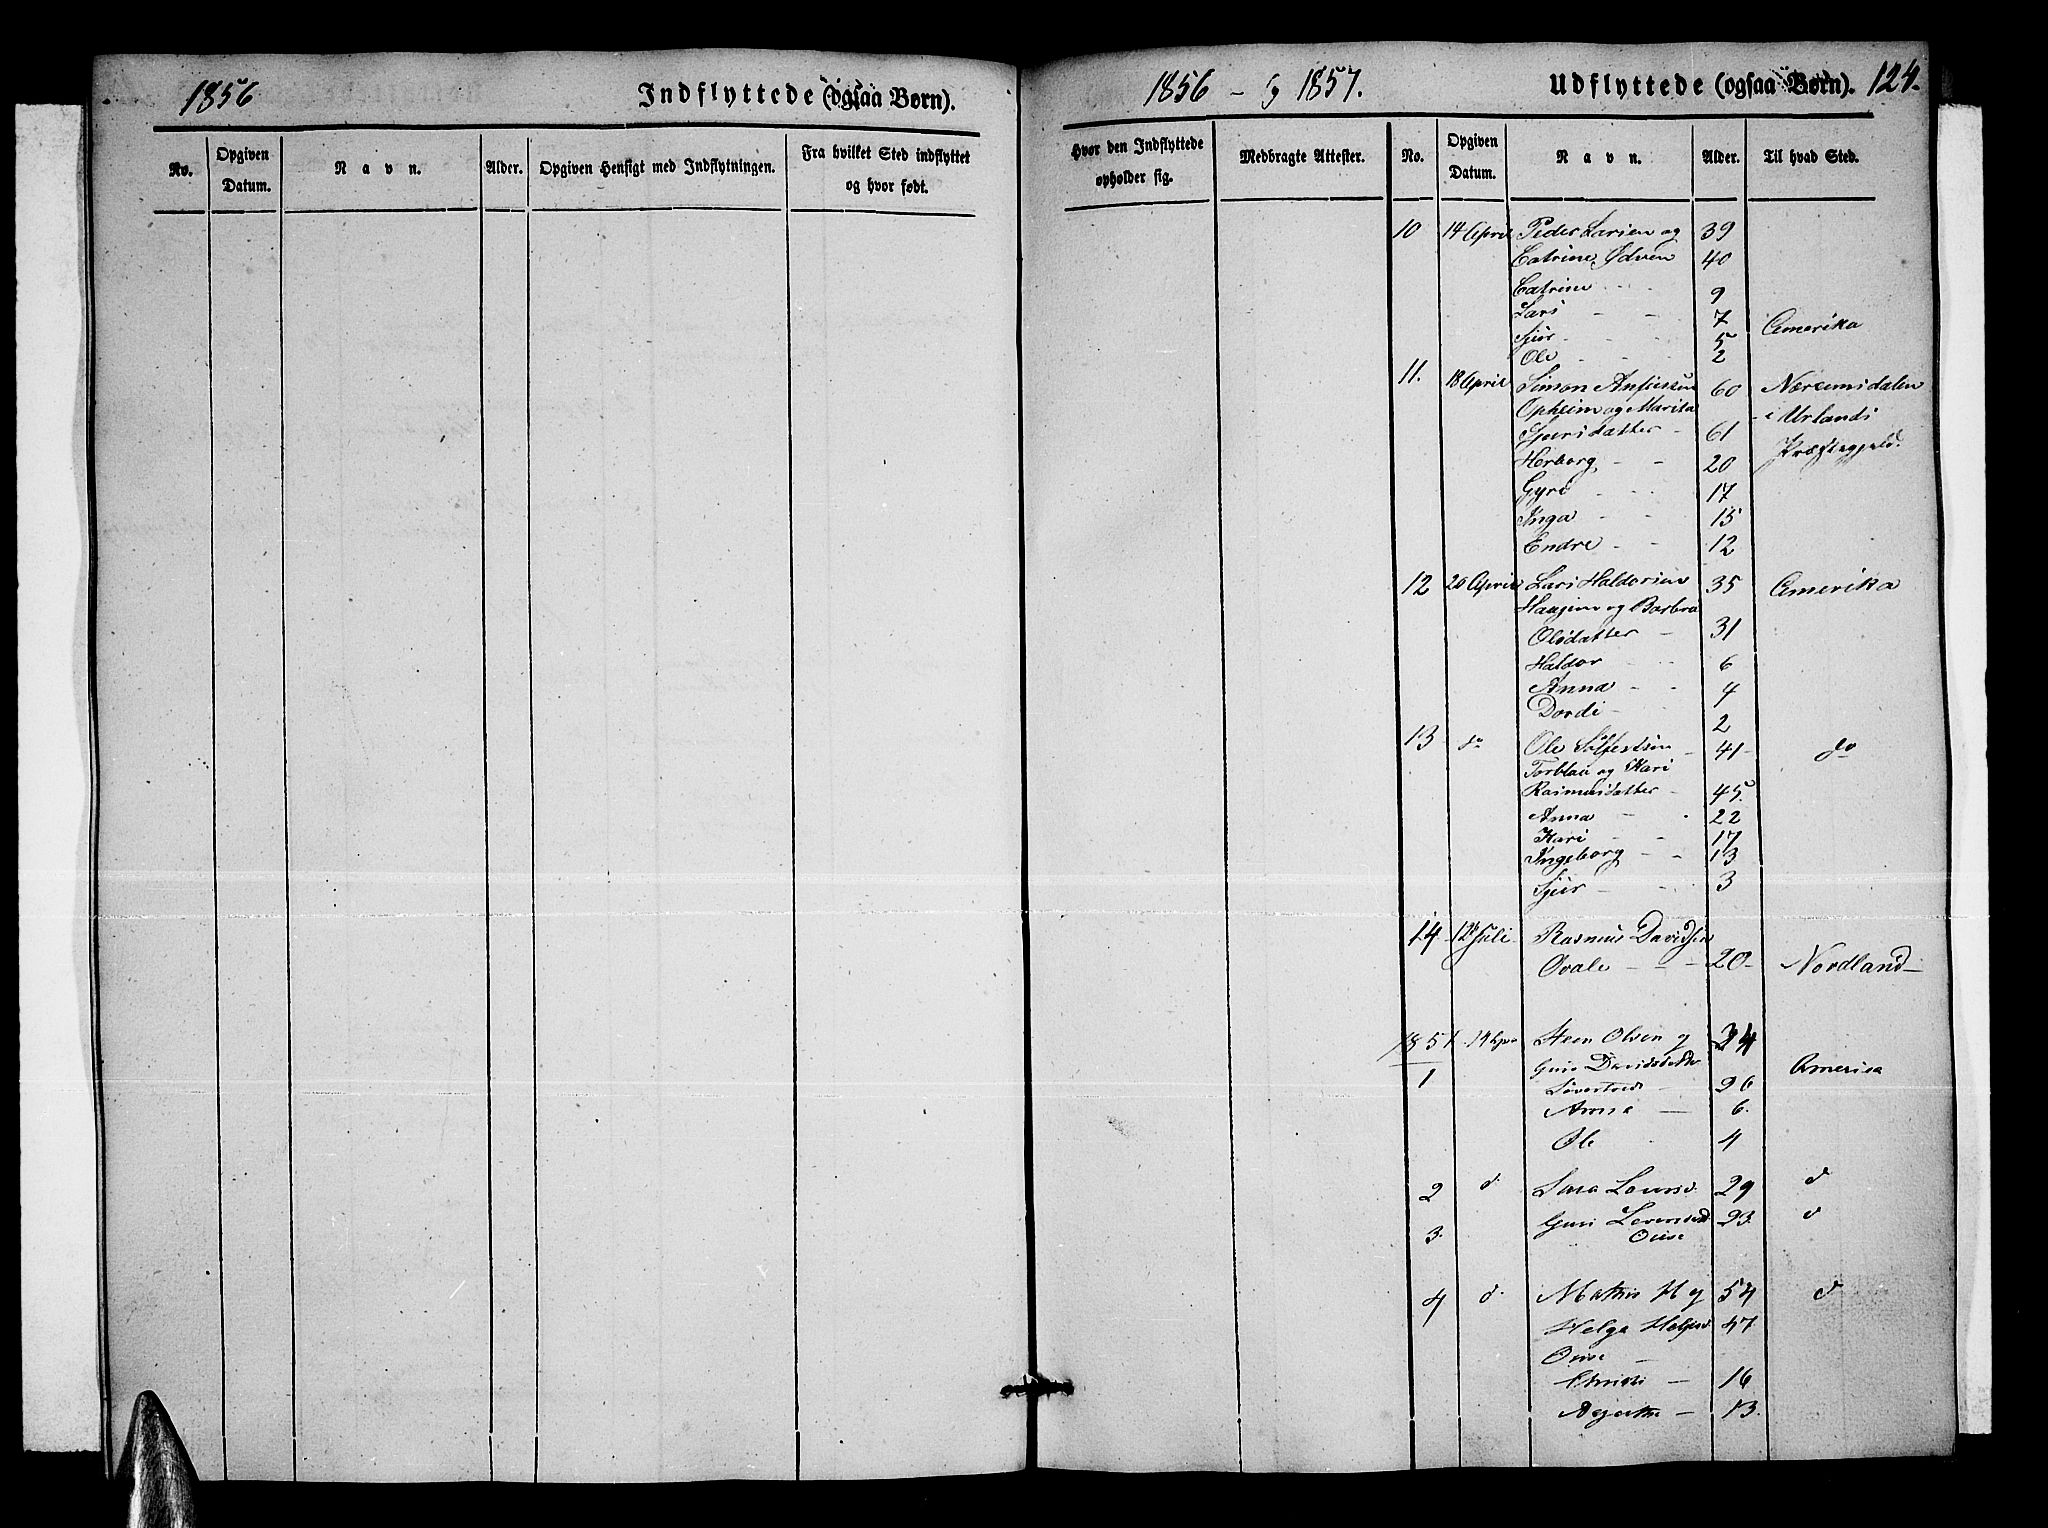 1856
Indflyttede (ogsaa Børn).
No.
Opgiven Datum.
Navn.
Alder.
Opgiven Hensigt med Indflytningen.
Fra hvilket Sted indflyttet og hvor født.
1856 - og 1857.
Udflyttede (ogsaa Børn).
124.
Hvor den Indflyttede opholder sig.
Medbragte Attester.
No.
Opgiven Datum.
Navn.
Alder.
Til hvad Sted.
10 14 April Peder Larsen og 39
Catrine Ødven 40
Catrine - - 9
Lars - - 7 Amerika
Sjur - - 5
Ole - - 2
11. 18 April Simon Anfinsen 60 Nærøensdalen
Opheim og Marita i Urlands
Sjursdatter - 61 Præstegjeld.
Herborg - - 20
Gyri - - 17
Inga - - 15
Endre - - 12
12 20 April Lars Haldorsen 35 Amerika
Haugen og Barbra
Olsdatter - 31
Haldor - - 6
Anna - - 4
Dordi - 2
13 do Ole Sjfestsen - 41 do
Torblaa og Kari
Rasmusdatter - 45.
Anna - - 22
Kari - - 17
Ingeborg - - 13
Sjur - - 3
14 12 Juli Rasmus Davidsen
Qvale - - - 20 - Nordland -
1857 14 Apr Steen Olsen og 34
1 Guro Davidsdatter Amerika
- 26
Anna - 6.
Ole 4
2 d. Sara Laursd. 29 d
3. Guri 23. d
4 d. Mathis H og 54 d
Helga 47.
- 16
Agathe - 13.